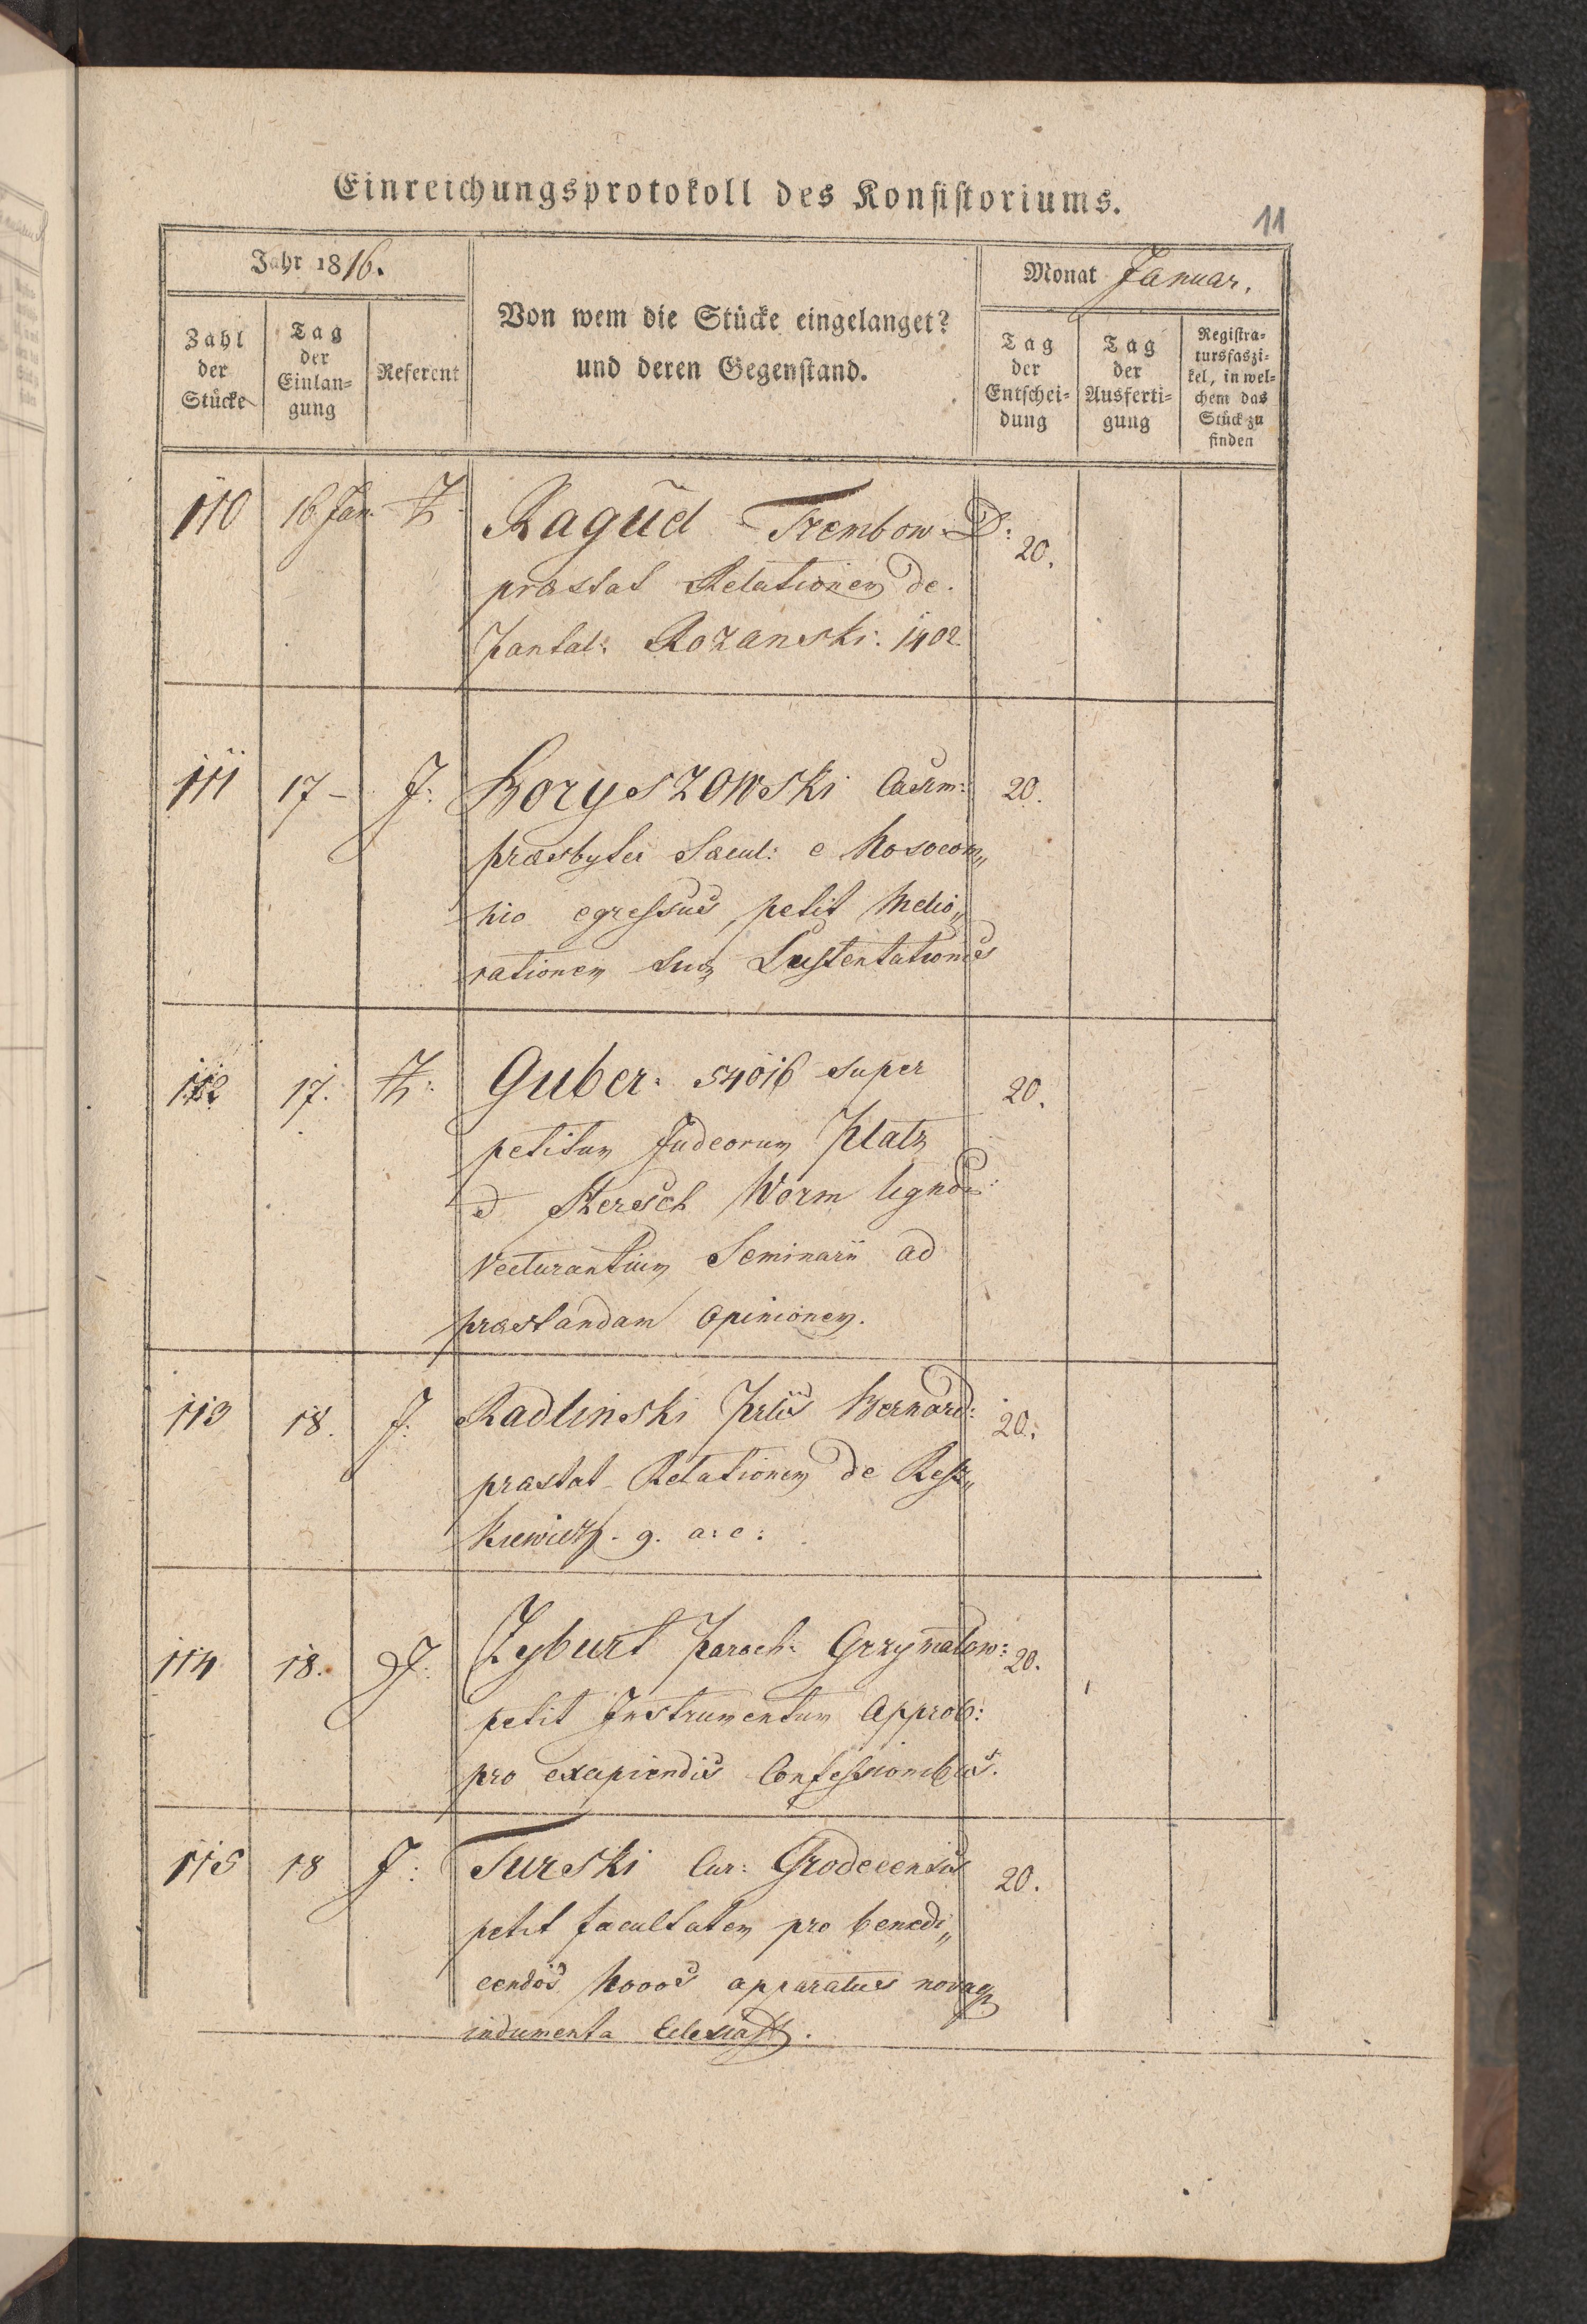 Einreichungsprotokoll des Konsistoriums.
11
Jahr 1816.
Monat Januar.
Zahl der Stücke
Tag der Einlan=gung
Referent
Von wem die Stücke eingelanget?
und deren Gegenstand.
Tag der Entschei=dung
Tag der Ausferti=gung
Registra=tursfaszi=kel, in wel=chem das Stück zu finden
110 16 Jan Ragud Trembow. D: 20.
præstat Relationem de
Pantal: Rozanski: 1402
111 17 – J: Boryszowski Casim: 20.
præsbyter Sæcul: e Nosocom„
nio egressus, petit Melio„
rationem suæ Sustentationis
112 17. Guber: 54016 super 20.
petitum Judeorum Platz
et Hersch Worm lignor:
Vecturantium Seminarii ad
præstandam Opinionem.
113 18. J: Radlinski Prlis Bernard: 20.
præstat Relationem de Resz„
kiewicz. 9. a: c:
114 18. J: Zyburt Paroch: Grzymalow: 20.
petit Instrumentum Approb:
pro excipiendis Confessionibus.
115 18 J: Turski Cur: Grodecensis 20.
petit facultatem pro benedi„
cendos novos apparatus novaq
indumenta Eclesiast.